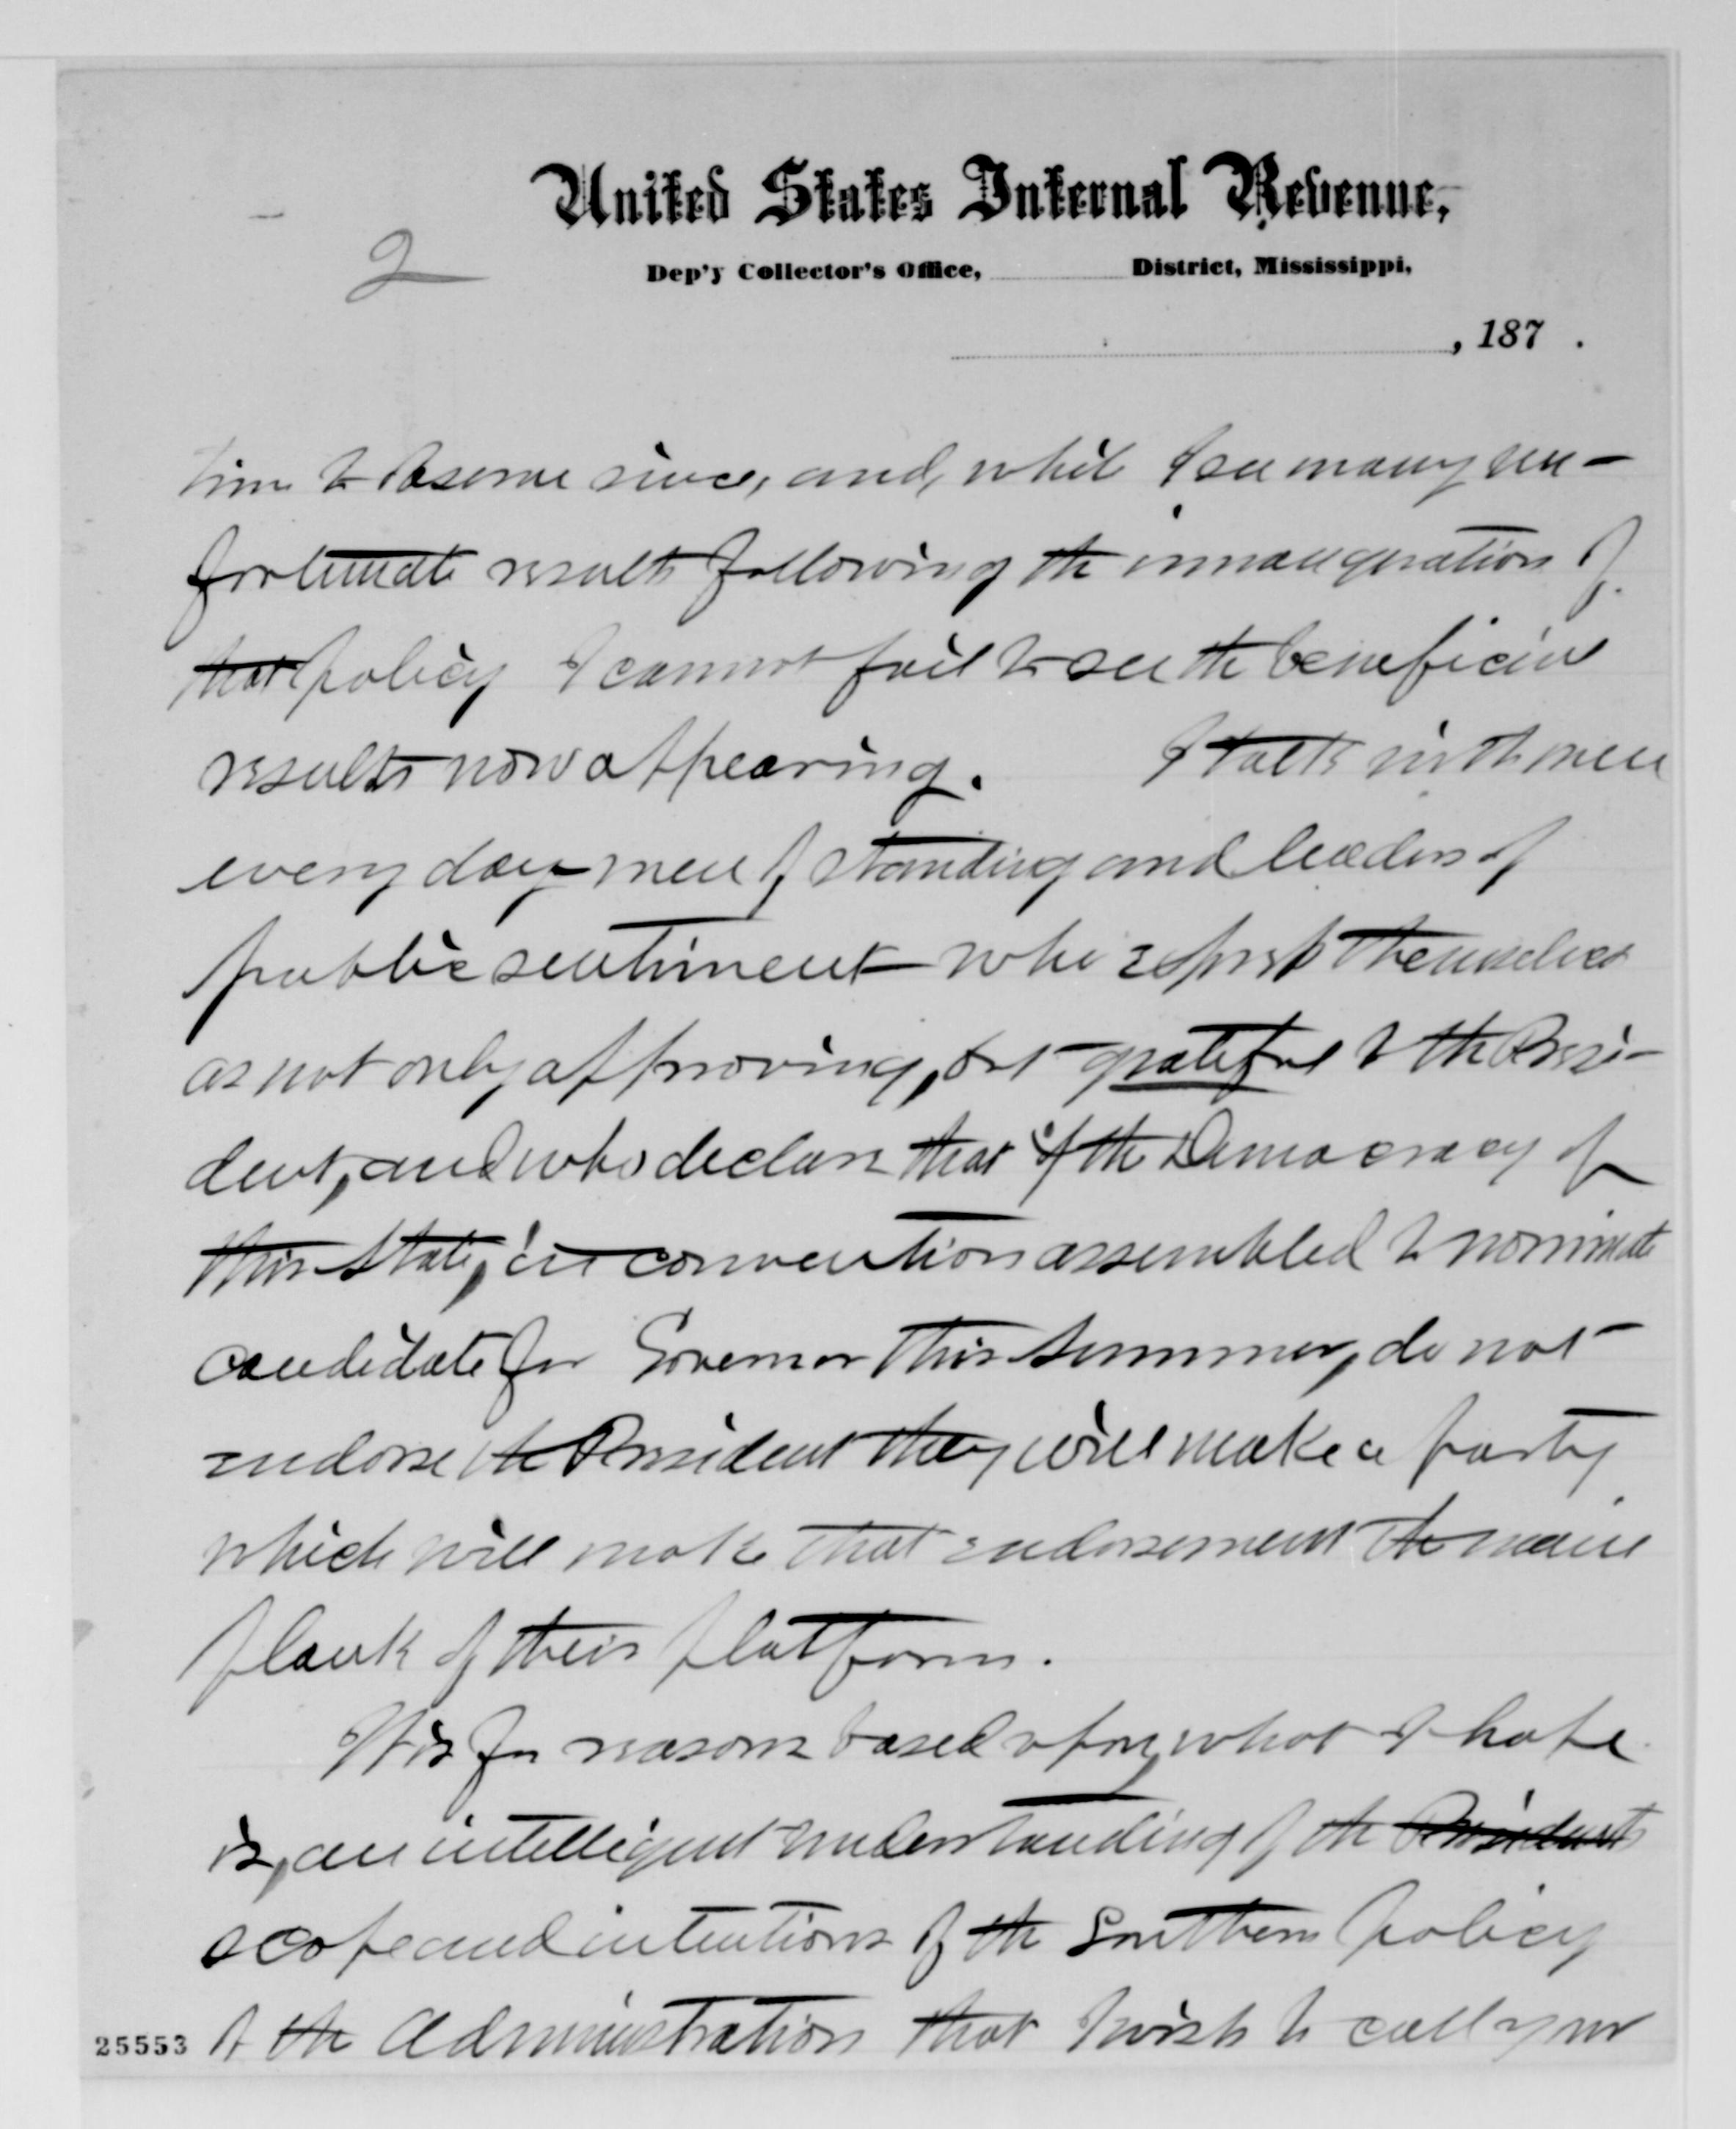 United States Internal Revenue,
2
Dep'y Collector's Office, District, Mississippi,
, 187 .
time to observe since, and, while I see many un-
fortunate results following the innauguration of
that policy I cannot fail to see the beneficial
results now appearing. I talk with men
every day - men of standing and leaders of
public sentiment - who express themselves
as not only approving, but grateful to the Presi-
dent, and who declare that if the Democracy of
this State, in convention assembled to nominate
candidate for Governor this Summer, do not
endorse the President they will make a party
which will make that endorsement the main
plank of their platform.
It is for reasons based upon, what I hope
is, an intelligent understanding of the Presidents
scope and intentions of the Southern policy
of the Administration that I wish to call your
25553